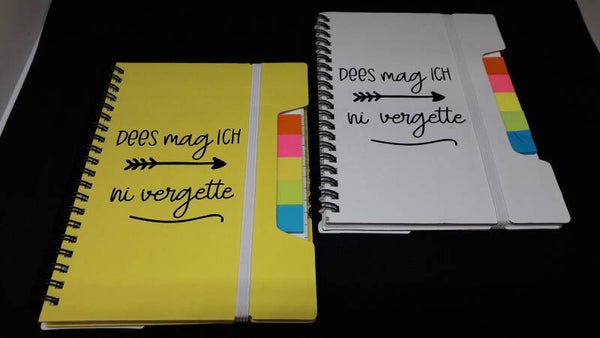 DEES mag ICH
ni vergette
DEES mag ICH
ni vergette